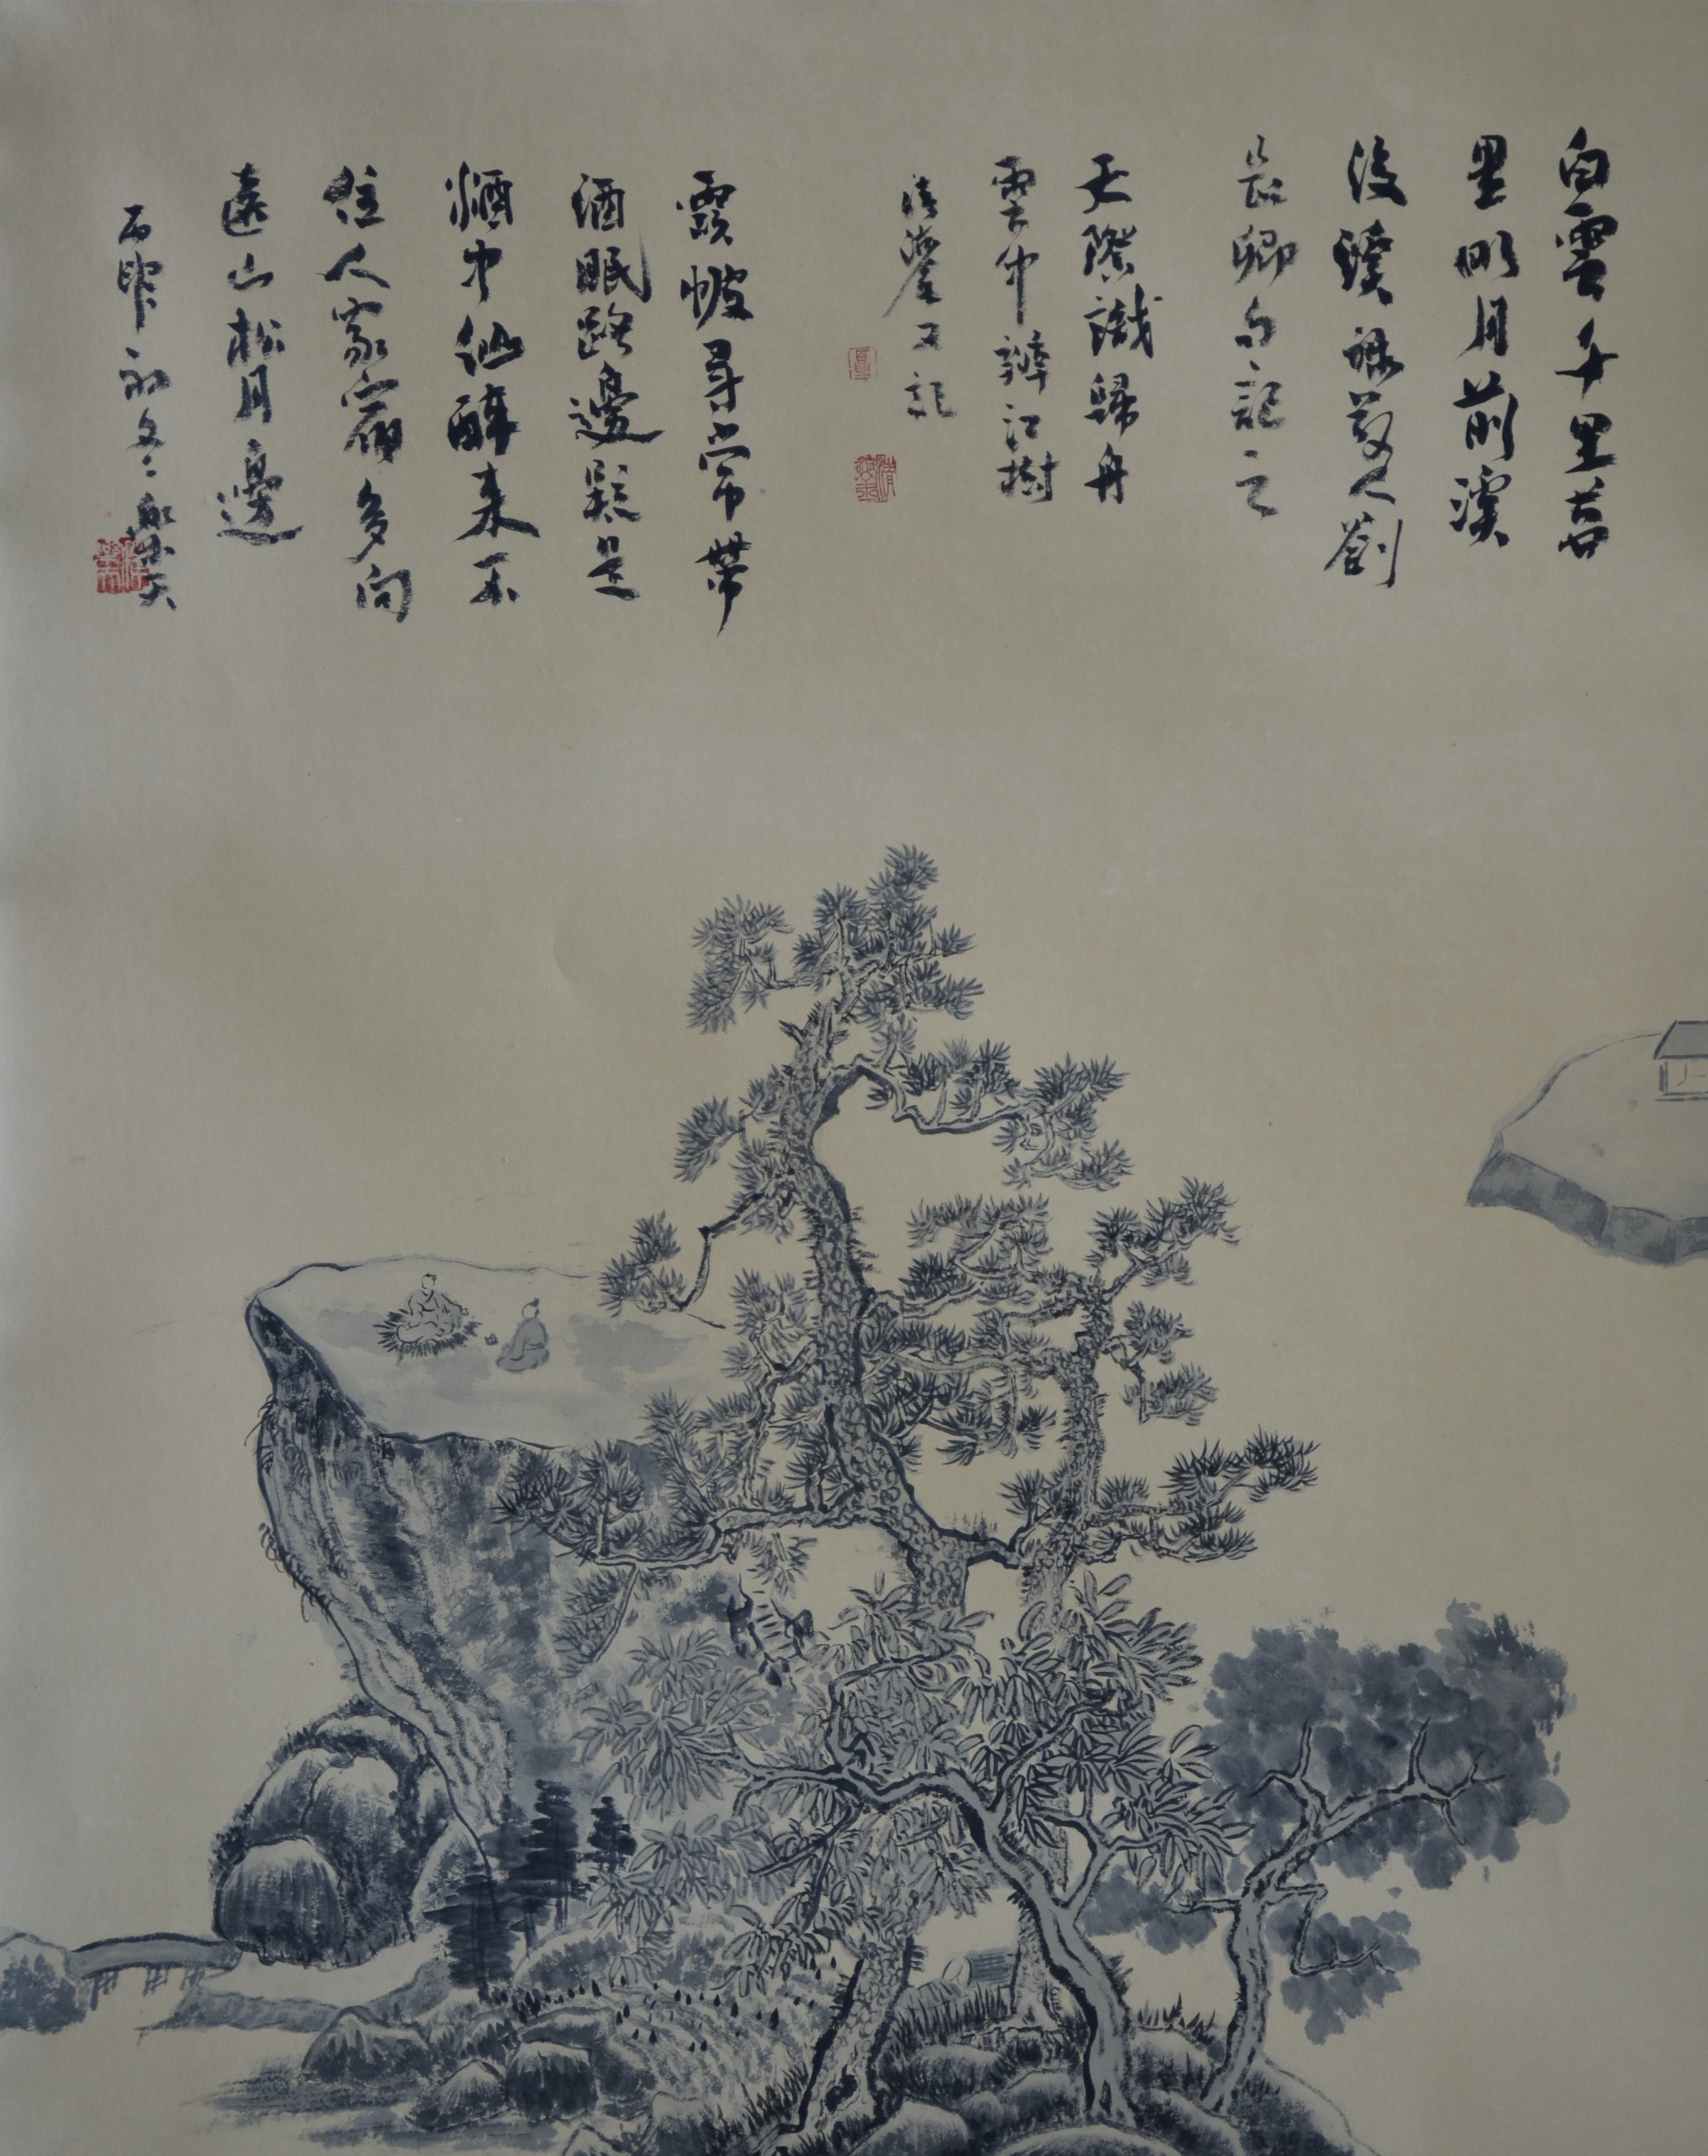 白雲千里萬
里明月前溪
後溪
長卿句記之
天際識歸舟
雲中辨江樹
又記
霞帔尋常帶
酒眠路邊疑是
酒中仙醉來不
住人家宿多向
遠山松月邊
丙申初冬